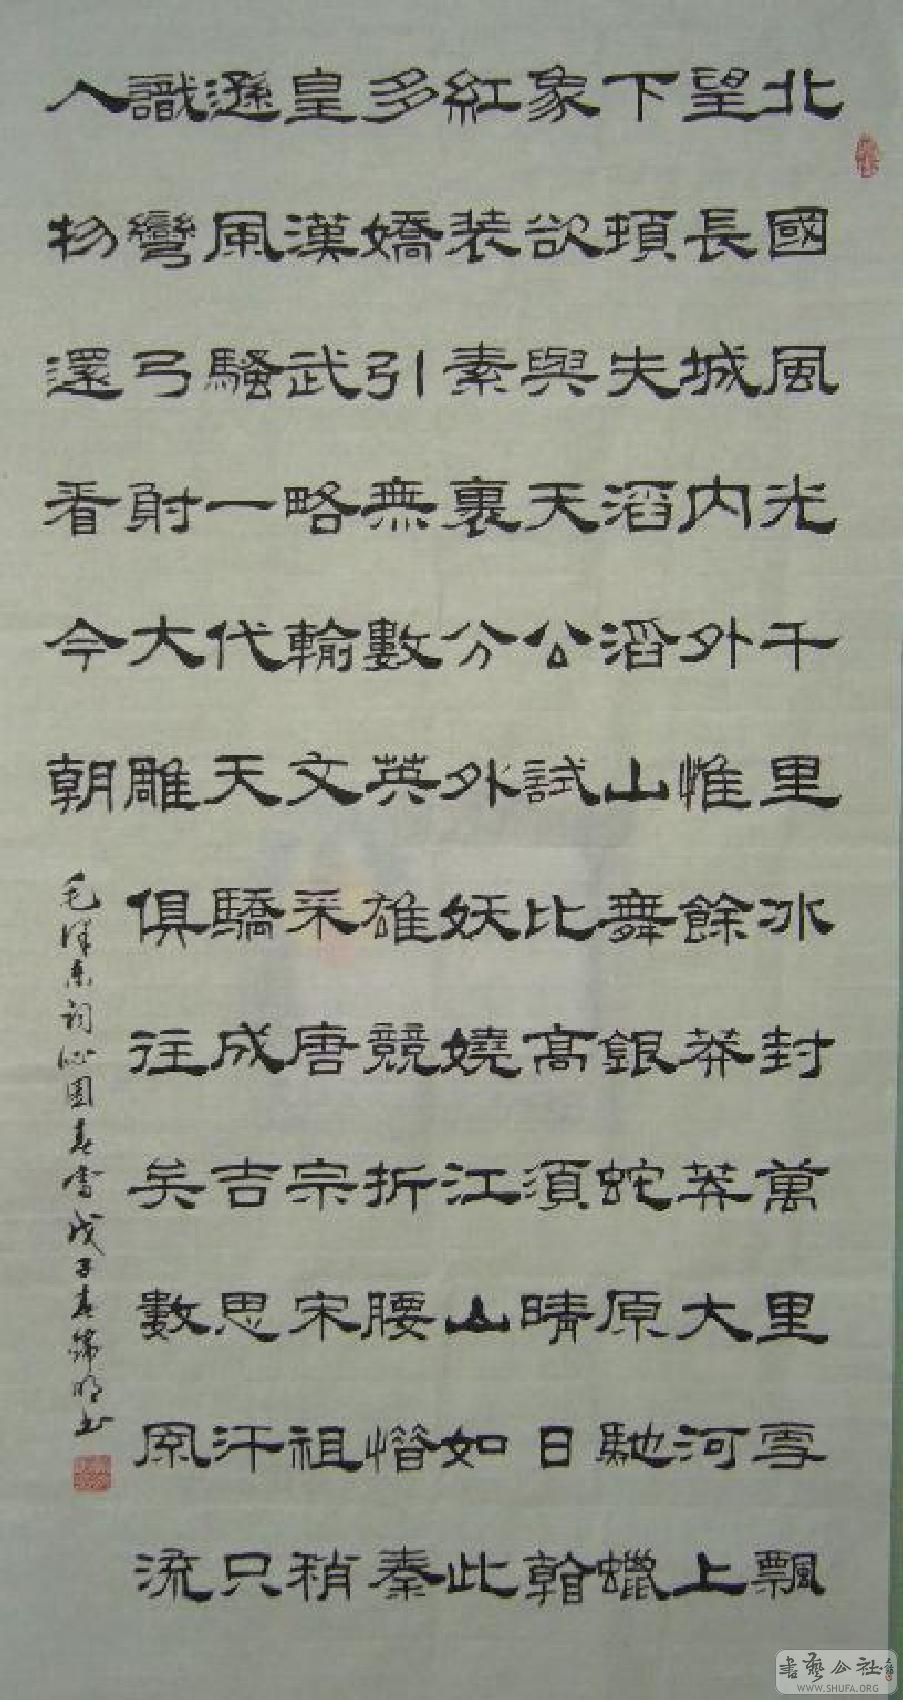 北國風光千里冰封萬里雪飄
望長城內外惟餘莽莽大河上
下頓失滔滔山舞銀蛇原馳蠟
象欲與天公試比高須晴日看
紅裝素裹分外妖嬈江山如此
多嬌引無數英雄競折腰惜秦
皇漢武略輸文采唐宗宋祖稍
遜風騷一代天驕成吉思汗只
識彎弓射大雕俱往矣數風流
人物還看今朝
毛澤東詞沁園春雪戊子春錦明书
書藝公社
WWW.SHUFA.ORG